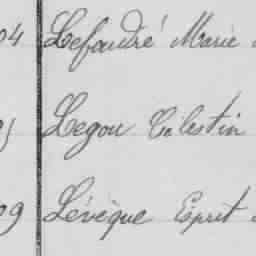 04 Lefoudré Marie
Legou Célestin
09 Lévèque Esprit